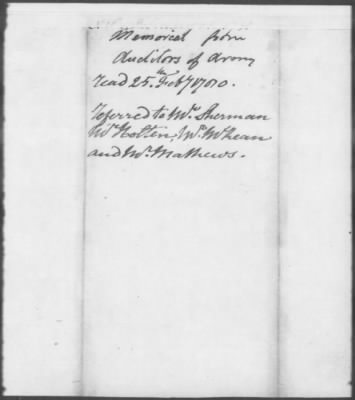 Memorial from
Auditors of Army
read 25th Feby 1780.
referred to Mr. Sherman
Mr. Holten, Mr. McKean
and Mr. Mathews.